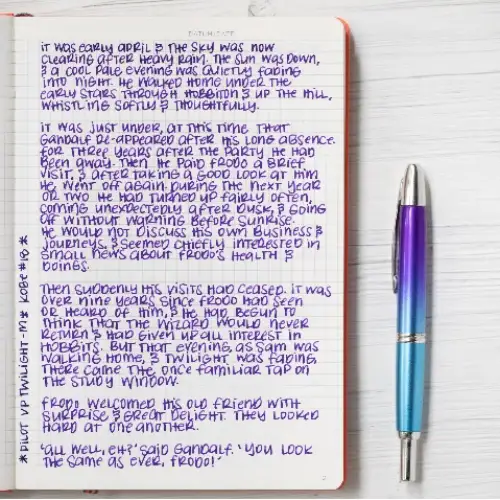 IT WAS EARLY APRIL & THE SKY WAS NOW
CLEARING AFTER HEAVY RAIN. THE SUN WAS DOWN,
& A COOL PALE EVENING WAS QUIETLY FADING
INTO NIGHT. HE WALKED HOME UNDER THE
EARLY STARS THROUGH HOBBITON & UP THE HILL,
WHISTLING SOFTLY & THOUGHTFULLY.
IT WAS JUST UNDER, AT THIS TIME THAT
GANDALF RE-APPEARED AFTER HIS LONG ABSENCE.
FOR THREE YEARS AFTER THE PARTY HE HAD
BEEN AWAY. THEN HE PAID FRODO A BRIEF
VISIT, & AFTER TAKING A GOOD LOOK AT HIM
HE WENT OFF AGAIN. DURING THE NEXT YEAR
OR TWO HE HAD TURNED UP FAIRLY OFTEN,
COMING UNEXPECTEDLY AFTER DUSK, & GOING
OFF WITHOUT WARNING BEFORE SUNRISE.
HE WOULD NOT DISCUSS HIS OWN BUSINESS &
JOURNEYS, & SEEMED CHIEFLY INTERESTED IN
SMALL NEWS ABOUT FRODO'S HEALTH &
DOINGS.
THEN SUDDENLY HIS VISITS HAD CEASED. IT WAS
OVER NINE YEARS SINCE FRODO HAD SEEN
OR HEARD OF HIM, & HE HAD BEGUN TO
THINK THAT THE WIZARD WOULD NEVER
RETURN & HAD GIVEN UP ALL INTEREST IN
HOBBITS. BUT THAT EVENING, AS SAM WAS
WALKING HOME, & TWILIGHT WAS FADING,
THERE CAME THE ONCE FAMILIAR TAP ON
THE STUDY WINDOW.
FRODO WELCOMED HIS OLD FRIEND WITH
SURPRISE & GREAT DELIGHT. THEY LOOKED
HARD AT ONE ANOTHER.
'ALL WELL, EH?' SAID GANDALF. 'YOU LOOK
THE SAME AS EVER, FRODO!'
* PILOT VP TWILIGHT - M * KOBE #18 *